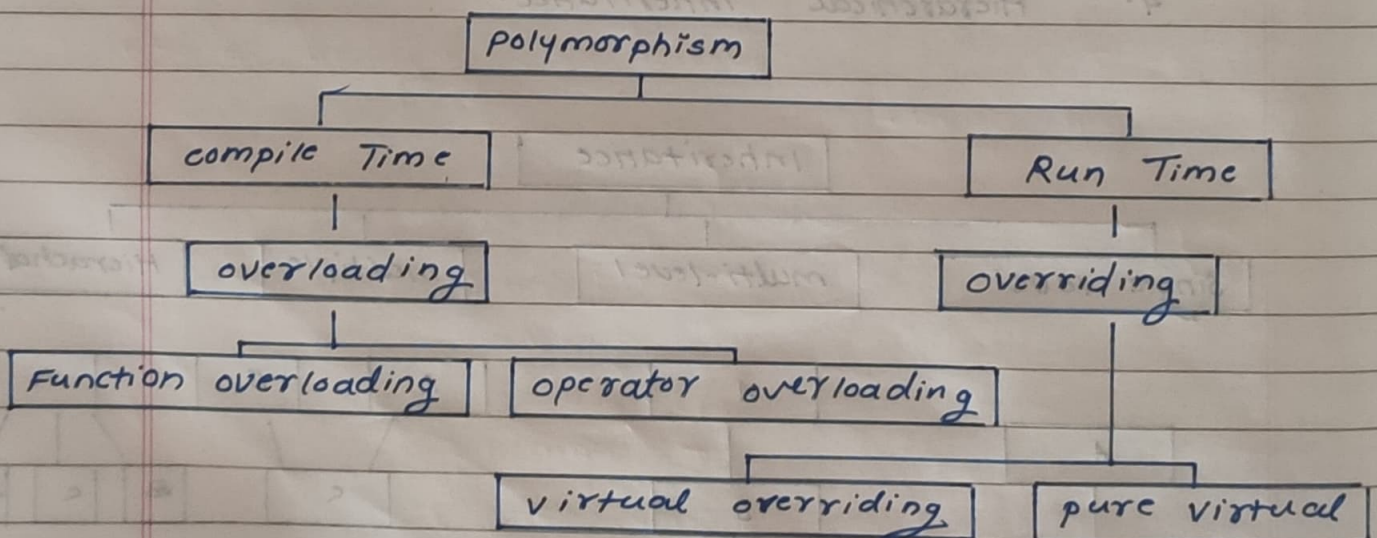 polymorphism
compile Time
Run Time
overloading
overriding
Function overloading
operator overloading
virtual overriding
pure virtual